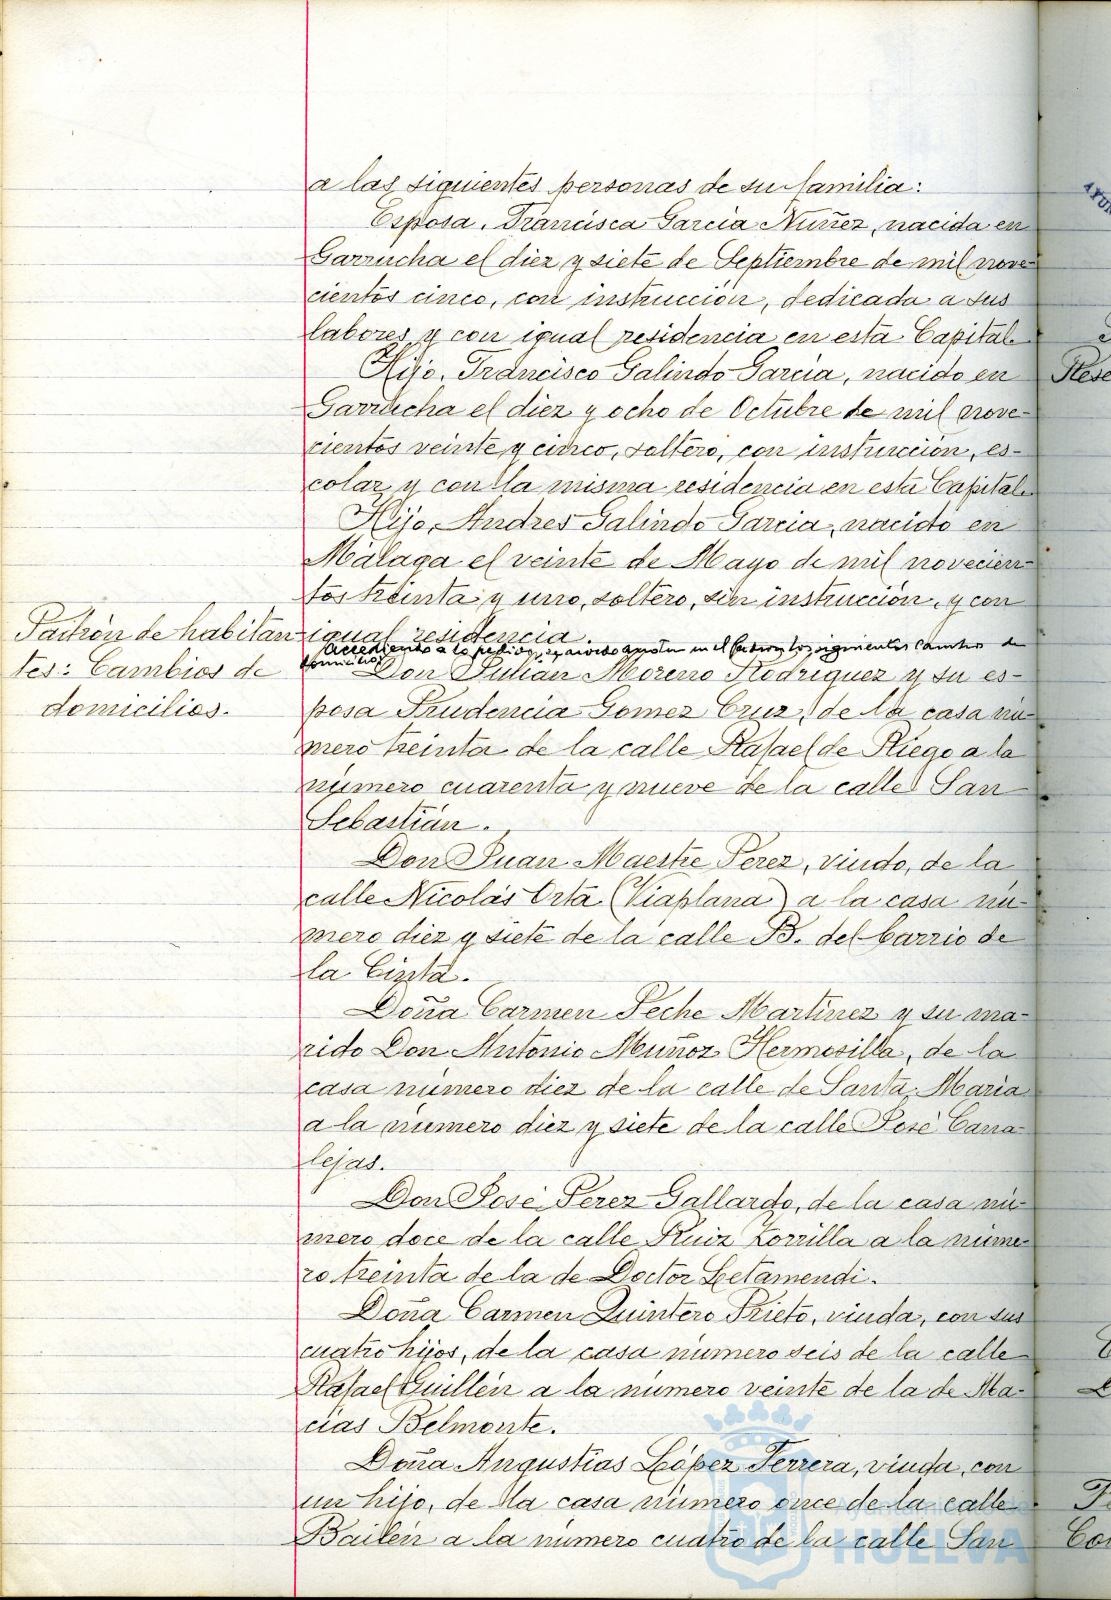 a las siguientes personas de su familia:
Esposa, Francisca Garcia Nuñez, nacida en
Garrucha el diez y siete de Septiembre de mil nove-
cientos cinco, con instrucción, dedicada a sus
labores y con igual residencia en esta Capital.
Hijo, Francisco Galindo Garcia, nacido en
Garrucha el diez y ocho de Octubre de mil nove-
cientos veinte y cinco, soltero, con instrucción, es-
colar y con la misma residencia en esta Capital.
Hijo, Andres Galindo Garcia, nacido en
Málaga el veinte de Mayo de mil novecien-
tos treinta y uno, soltero, sin instrucción, y con
igual residencia.
Padrón de habitan-
tes: Cambios de
domicilios.
Accediendo a lo pedido, se acordó anotar en el Padron los siguientes cambios de
domicilio:
Don Julián Moreno Rodriguez y su es-
posa Prudencia Gomez Cruz, de la casa nú-
mero treinta de la calle Rafael de Riego a la
número cuarenta y nueve de la calle San
Sebastián.
Don Juan Maestre Perez, viudo, de la
calle Nicolás Orta (Viaplana) a la casa nú-
mero diez y siete de la calle B. del barrio de
la Cinta.
Doña Carmen Peche Martinez y su ma-
rido Don Antonio Muñoz Hermosilla, de la
casa número diez de la calle de Santa Maria
a la número diez y siete de la calle José Cana-
lejas.
Don José Perez Gallardo, de la casa nú-
mero doce de la calle Ruiz Zorrilla a la núme-
ro treinta de la de Doctor Letamendi.
Doña Carmen Quintero Prieto, viuda, con sus
cuatro hijos, de la casa número seis de la calle
Rafael Guillén a la número veinte de la de Ma-
cías Belmonte.
Doña Angustias López Ferrera, viuda, con
un hijo, de la casa número once de la calle
Bailén a la número cuatro de la calle San
Ayuntamiento de
HUELVA